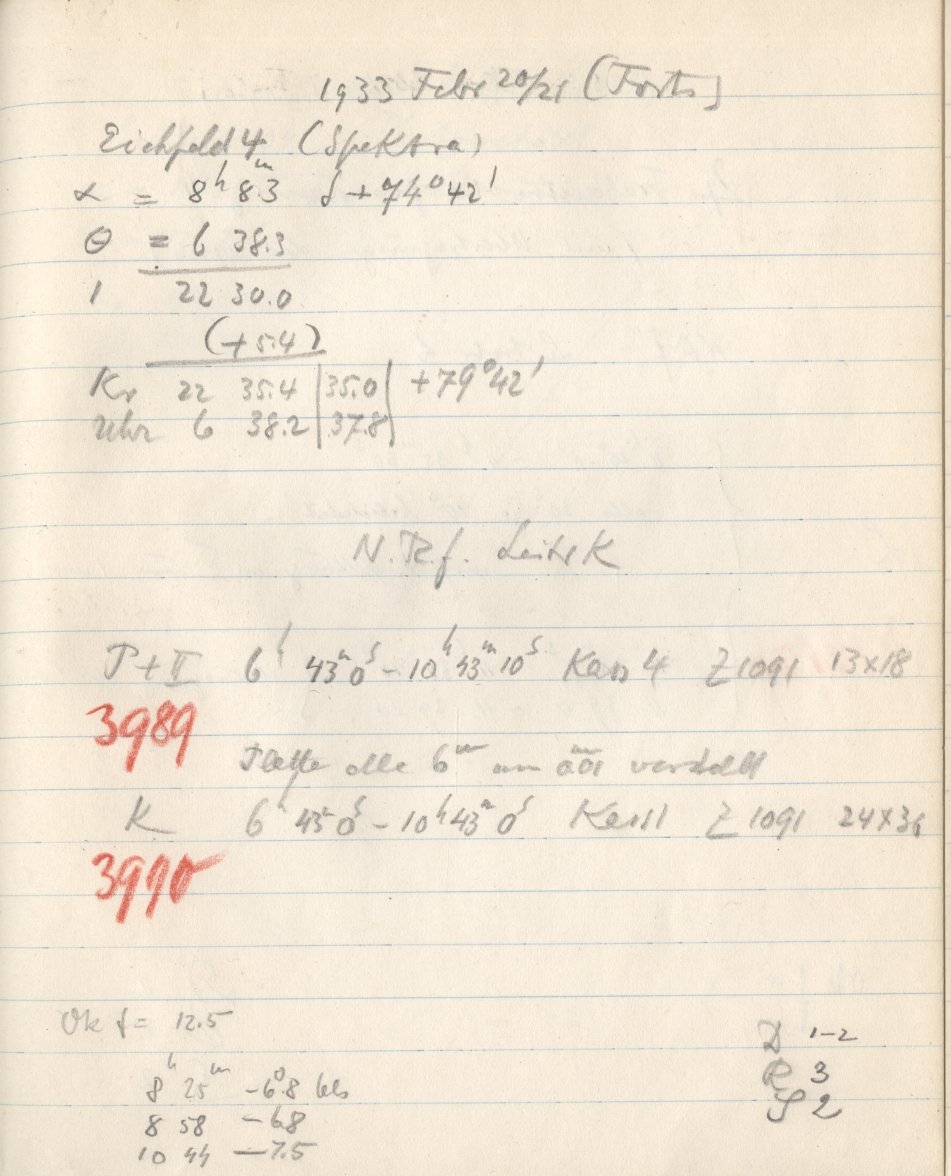 1933 Febr 20/21 (Forts)
Eichfeld 4 (Spektra)
α = 8ʰ 8.3ᵐ δ + 74° 42'
Θ = 6 38.3
1 22 30.0
(+5.4)
Kr 22 35.4 | 35.0 | +79° 42'
Uhr 6 38.2 | 37.8 |
N. R.f. Leitr K
P+II 6ʰ 43ᵐ 0ˢ - 10ʰ 43ᵐ 10ˢ Kass 4 Z 1091 13x18
3989
Platte alle 6ᵐ um verstellt
K 6ʰ 43ᵐ 0ˢ - 10ʰ 43ᵐ 0ˢ Kass 1 Z 1091 24x36
3990
Ok f = 12.5
8ʰ 25ᵐ -6°.8
8 58 -6.8
10 44 -7.5
D 1-2
R 3
S 2